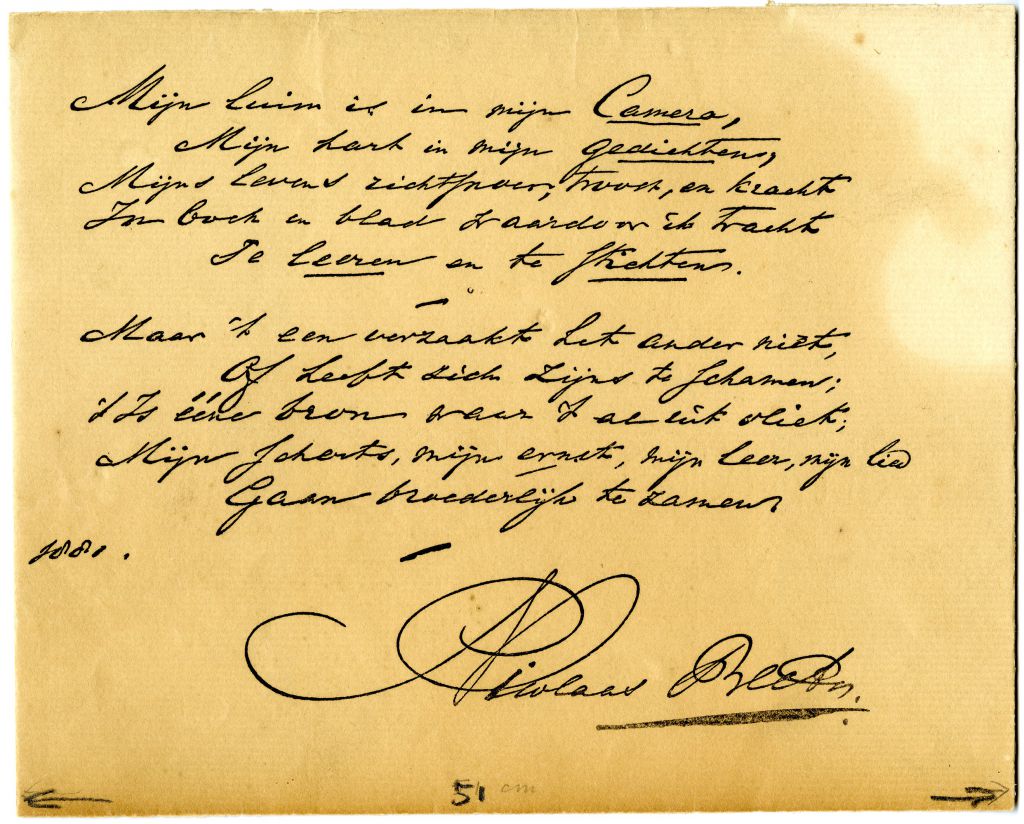 Mijn luim is in mijn Camera,
Mijn hart in mijn gedichten;
Mijns levens richtsnoer, troost, en kracht
In boek en blad waardoor ik tracht
Te leeren en te stichten.
—
Maar 't een verzaakt het ander niet,
Of heeft zich zijns te schamen;
't Is ééne bron waar 't al uit vliet;
Mijn scherts, mijn ernst, mijn leer, mijn lied
Gaan broederlijk te zamen.
1881.
—
Nikolaas Beets.
51 cm